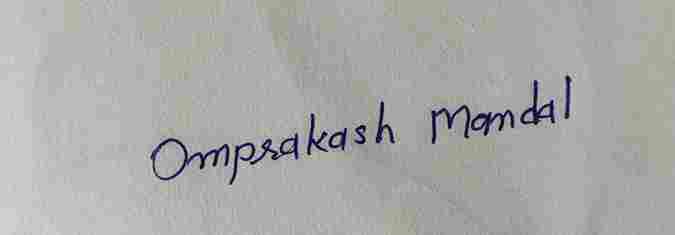 Omprakash Mandal